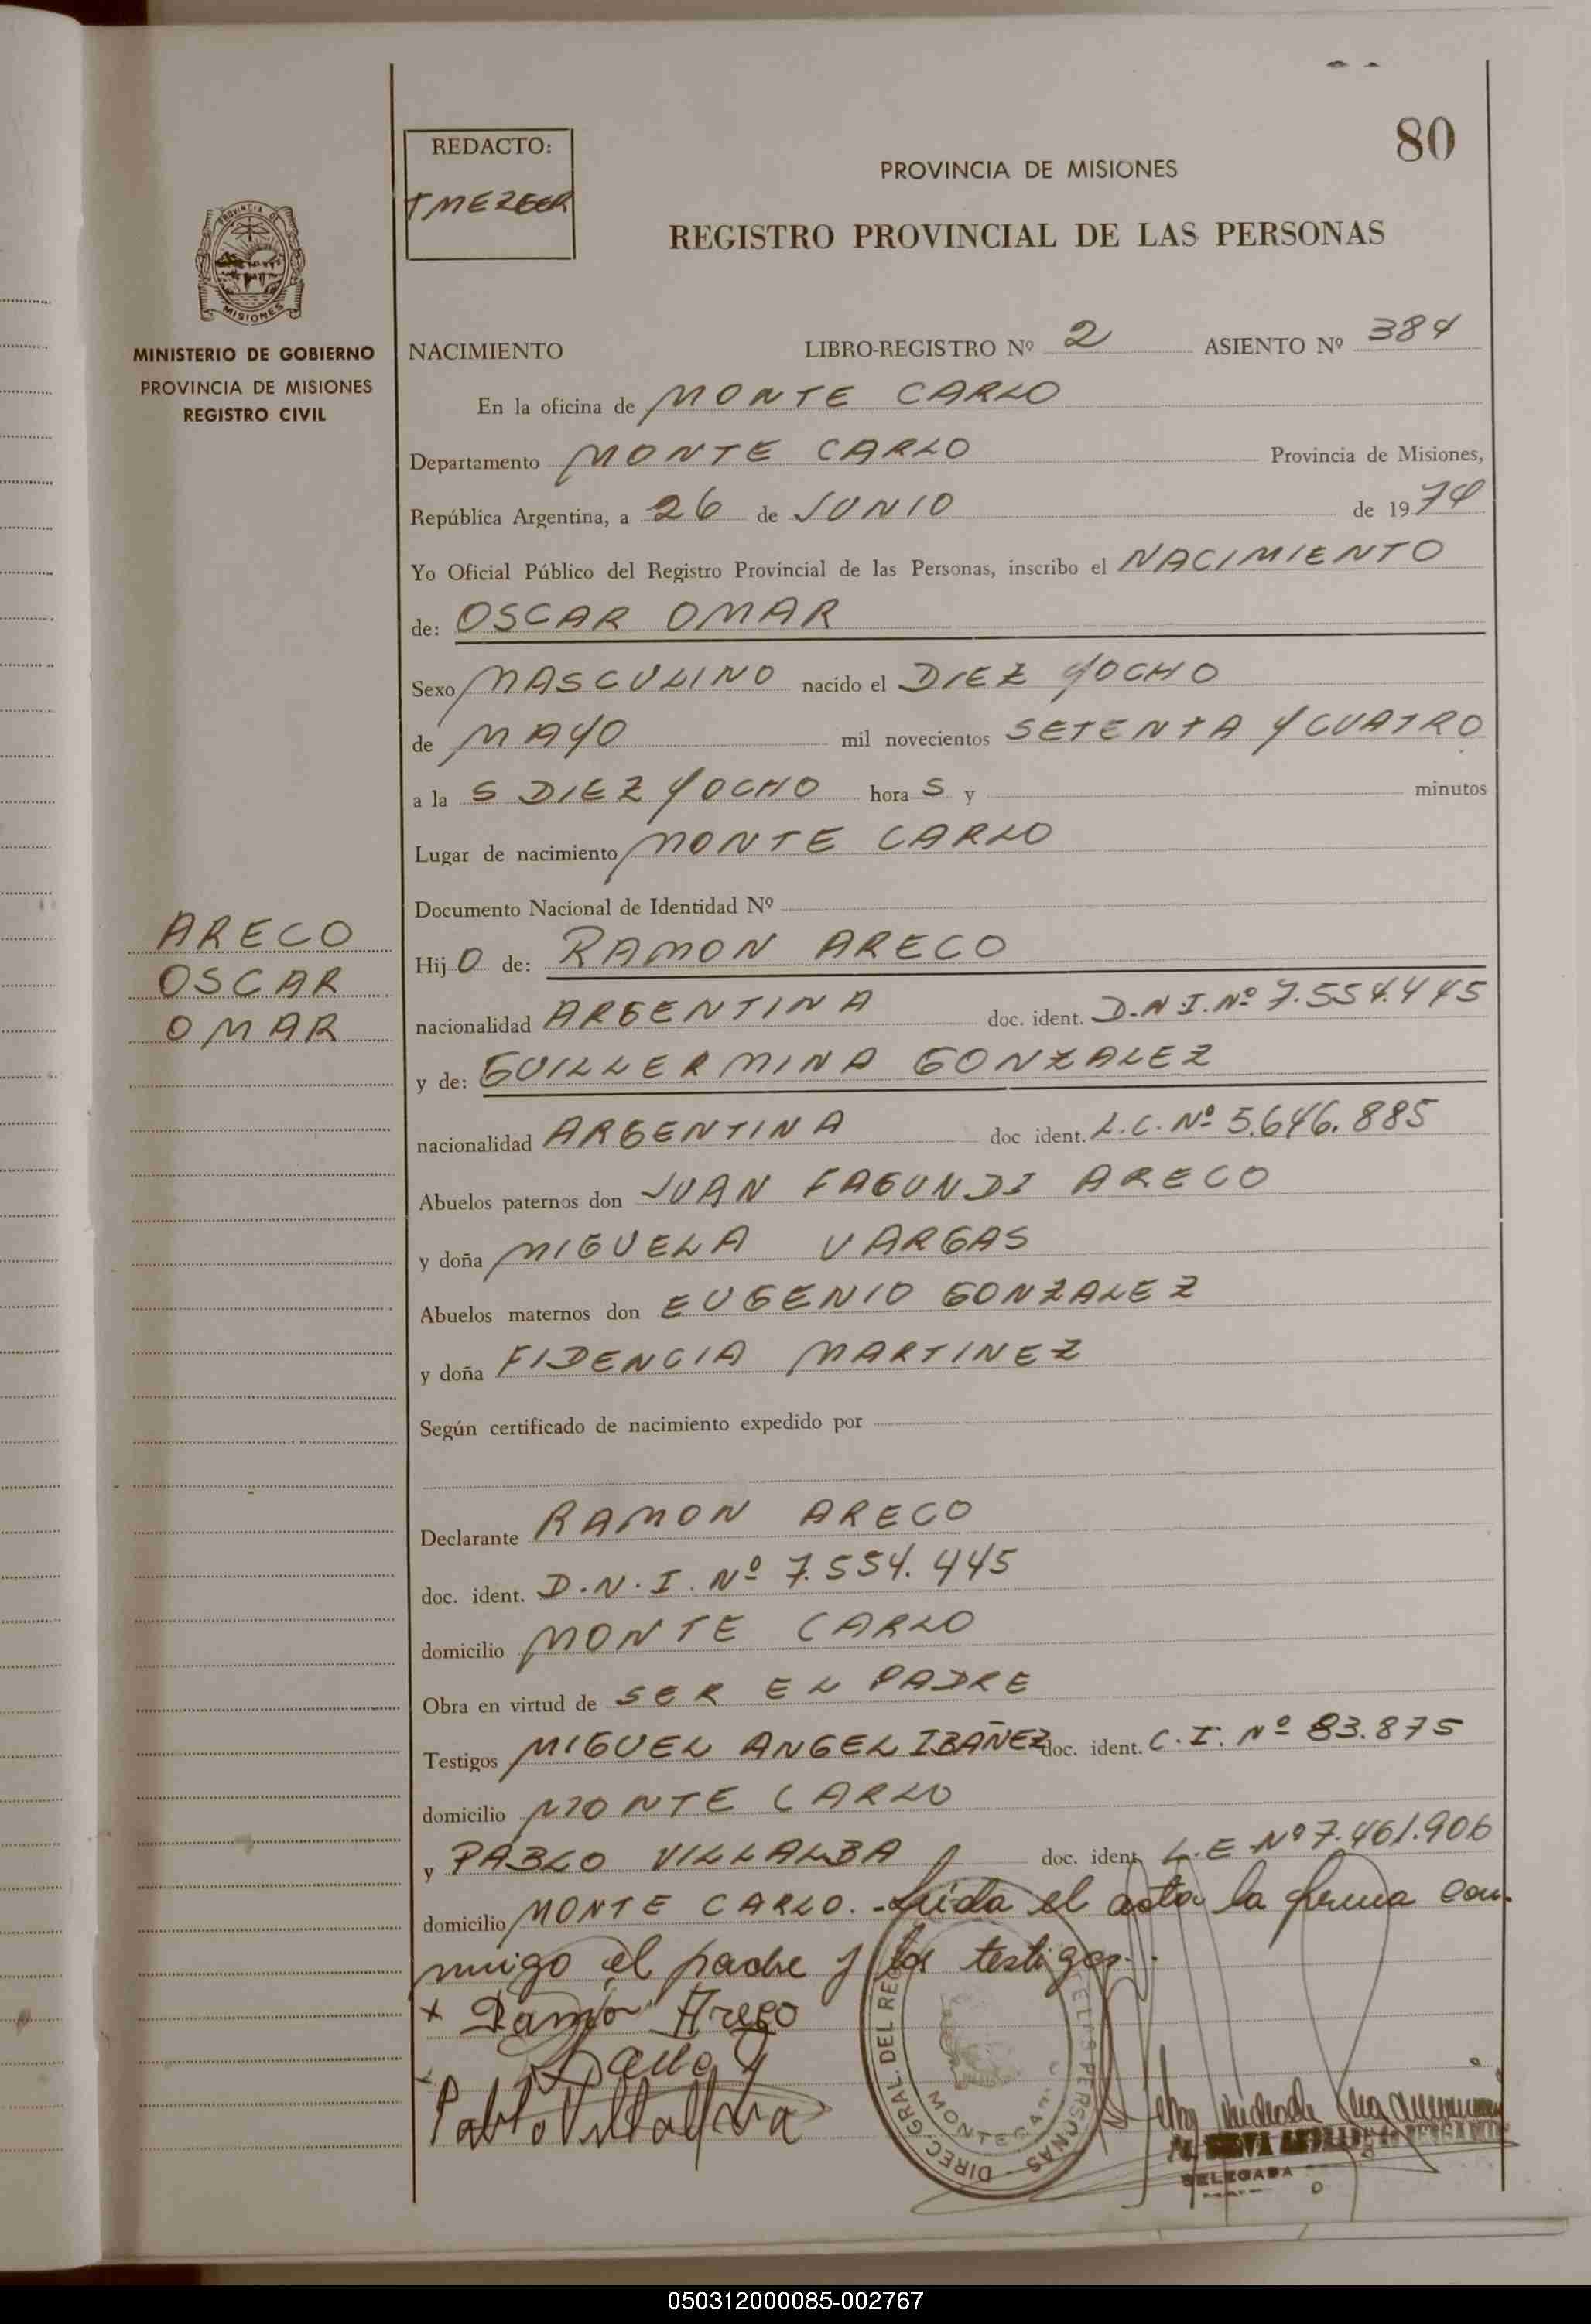 80
REDACTO:
PROVINCIA DE MISIONES
REGISTRO PROVINCIAL DE LAS PERSONAS
PROVINCIA DE
MISIONES
MINISTERIO DE GOBIERNO
PROVINCIA DE MISIONES
REGISTRO CIVIL
NACIMIENTO LIBRO-REGISTRO Nº 2 ASIENTO Nº 384
En la oficina de MONTE CARLO
Departamento MONTE CARLO Provincia de Misiones,
República Argentina, a 26 de JUNIO de 1974
Yo Oficial Público del Registro Provincial de las Personas, inscribo el NACIMIENTO
de: OSCAR OMAR
Sexo MASCULINO nacido el DIEZ YOCHO
de MAYO mil novecientos SETENTA Y CUATRO
a la S DIEZ YOCHO hora S y minutos
Lugar de nacimiento MONTE CARLO
Documento Nacional de Identidad Nº
ARECO
OSCAR
OMAR
Hij O de: RAMON ARECO
nacionalidad ARGENTINA doc. ident. D.N.I. Nº 7.554.445
y de: GUILLERMINA GONZALEZ
nacionalidad ARGENTINA doc ident. L.C. Nº 5.646.885
Abuelos paternos don JUAN FAGUNDI ARECO
y doña MIGUELA VARGAS
Abuelos maternos don EUGENIO GONZALEZ
y doña FIDENCIA MARTINEZ
Según certificado de nacimiento expedido por
Declarante RAMON ARECO
doc. ident. D.N.I. Nº 7.554.445
domicilio MONTE CARLO
Obra en virtud de SER EL PADRE
Testigos MIGUEL ANGEL IBAÑEZ doc. ident. C.I. Nº 83.875
domicilio MONTE CARLO
y PABLO VILLALBA doc. ident. L.E Nº 7.461.906
domicilio MONTE CARLO. - Leida el acta la firma con-
migo el padre y los testigos.
x Ramón Areco
Pablo Villalba
DIREC. GRAL. DEL REG DE LAS PERSONAS
MONTE CARLO
DELEGADA
050312000085-002767